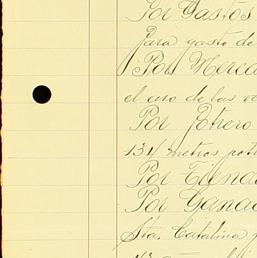 Por Gastos
Para gasto de
Por Merca
el uso de las ve
Por Potrero
131 metros potr
Por Tienda
Por Ganad
Sta. Catalina